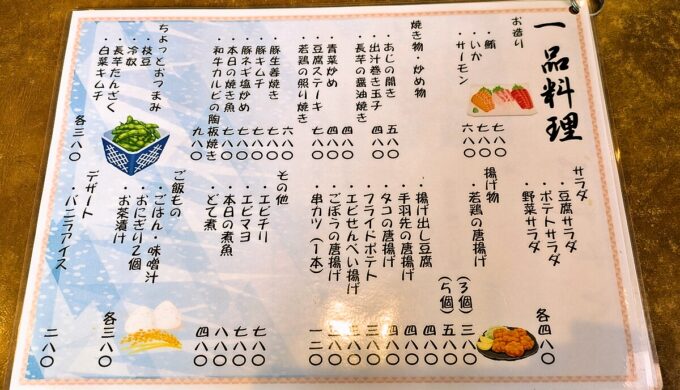 一品料理
お造り
・鮪 七八〇
・いか 七八〇
・サーモン 六八〇
焼き物・炒め物
・あじの開き 五八〇
・出汁巻き玉子 四八〇
・長芋の醤油焼き
・青菜炒め 四八〇
・豆腐ステーキ 四八〇
・若鶏の照り焼き 七八〇
・豚生姜焼き 六八〇
・豚キムチ 七八〇
・豚ネギ塩炒め 七八〇
・本日の焼き魚 七八〇
・和牛カルビの陶板焼き 九八〇
ちょっとおつまみ
・枝豆
・冷奴
・長芋たんざく
・白菜キムチ
各三八〇
サラダ
・豆腐サラダ
・ポテトサラダ
・野菜サラダ
各四八〇
揚げ物
・若鶏の唐揚げ
(3個) 三八〇
(5個) 五八〇
・揚げ出し豆腐 四八〇
・手羽先の唐揚げ 四八〇
・タコの唐揚げ 四八〇
・フライドポテト 三八〇
・エビせんべい揚げ 三八〇
・ごぼうの唐揚げ 三八〇
・串カツ(1本) 一二〇
その他
・エビチリ 七八〇
・エビマヨ 七八〇
・本日の煮魚 七八〇
・どて煮 四八〇
ご飯もの
・ごはん・味噌汁
・おにぎり2個
・お茶漬け
各三八〇
デザート
・バニラアイス 二八〇